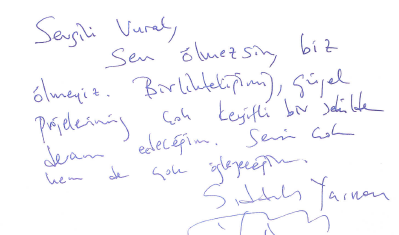 Sevgili Vural,
Sen ölmezsin, biz
ölmeyiz. Birlikteliğimiz, güzel
projelerimiz çok keyifli bir şekilde
devam edeceğim. Seni çok
hem de çok özleyeceğim.